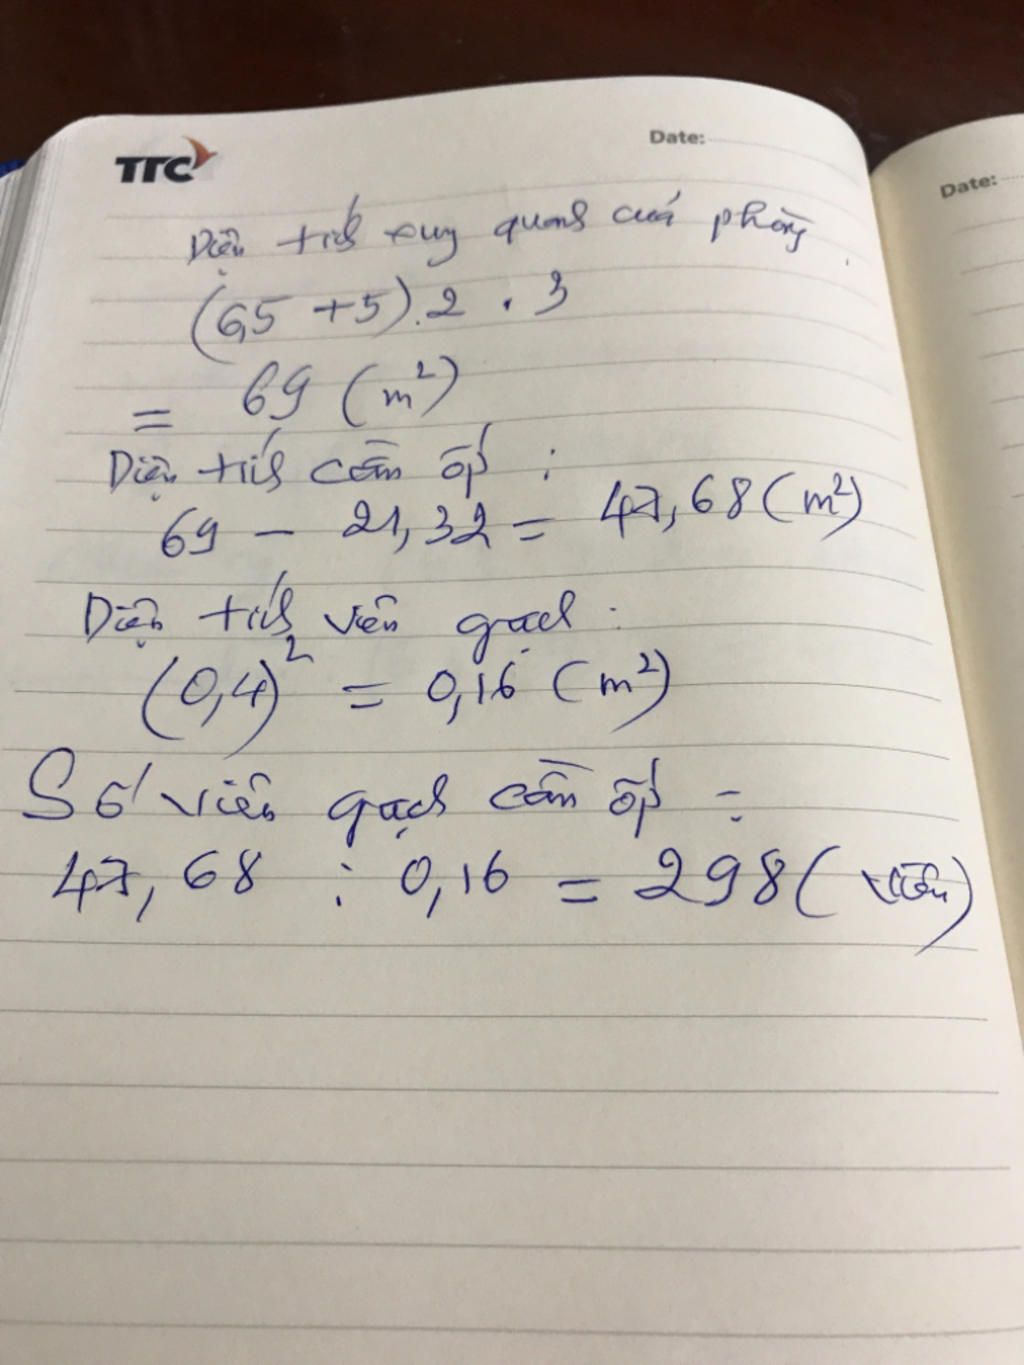 TTC
Date:
Date:
Diện tích xung quanh của phòng
(6,5 + 5).2 . 3
= 69 (m²)
Diện tích cần ốp :
69 - 21,32 = 47,68 (m²)
Diện tích viên gạch :
(0,4)² = 0,16 (m²)
Số viên gạch cần ốp :
47,68 : 0,16 = 298 (viên)